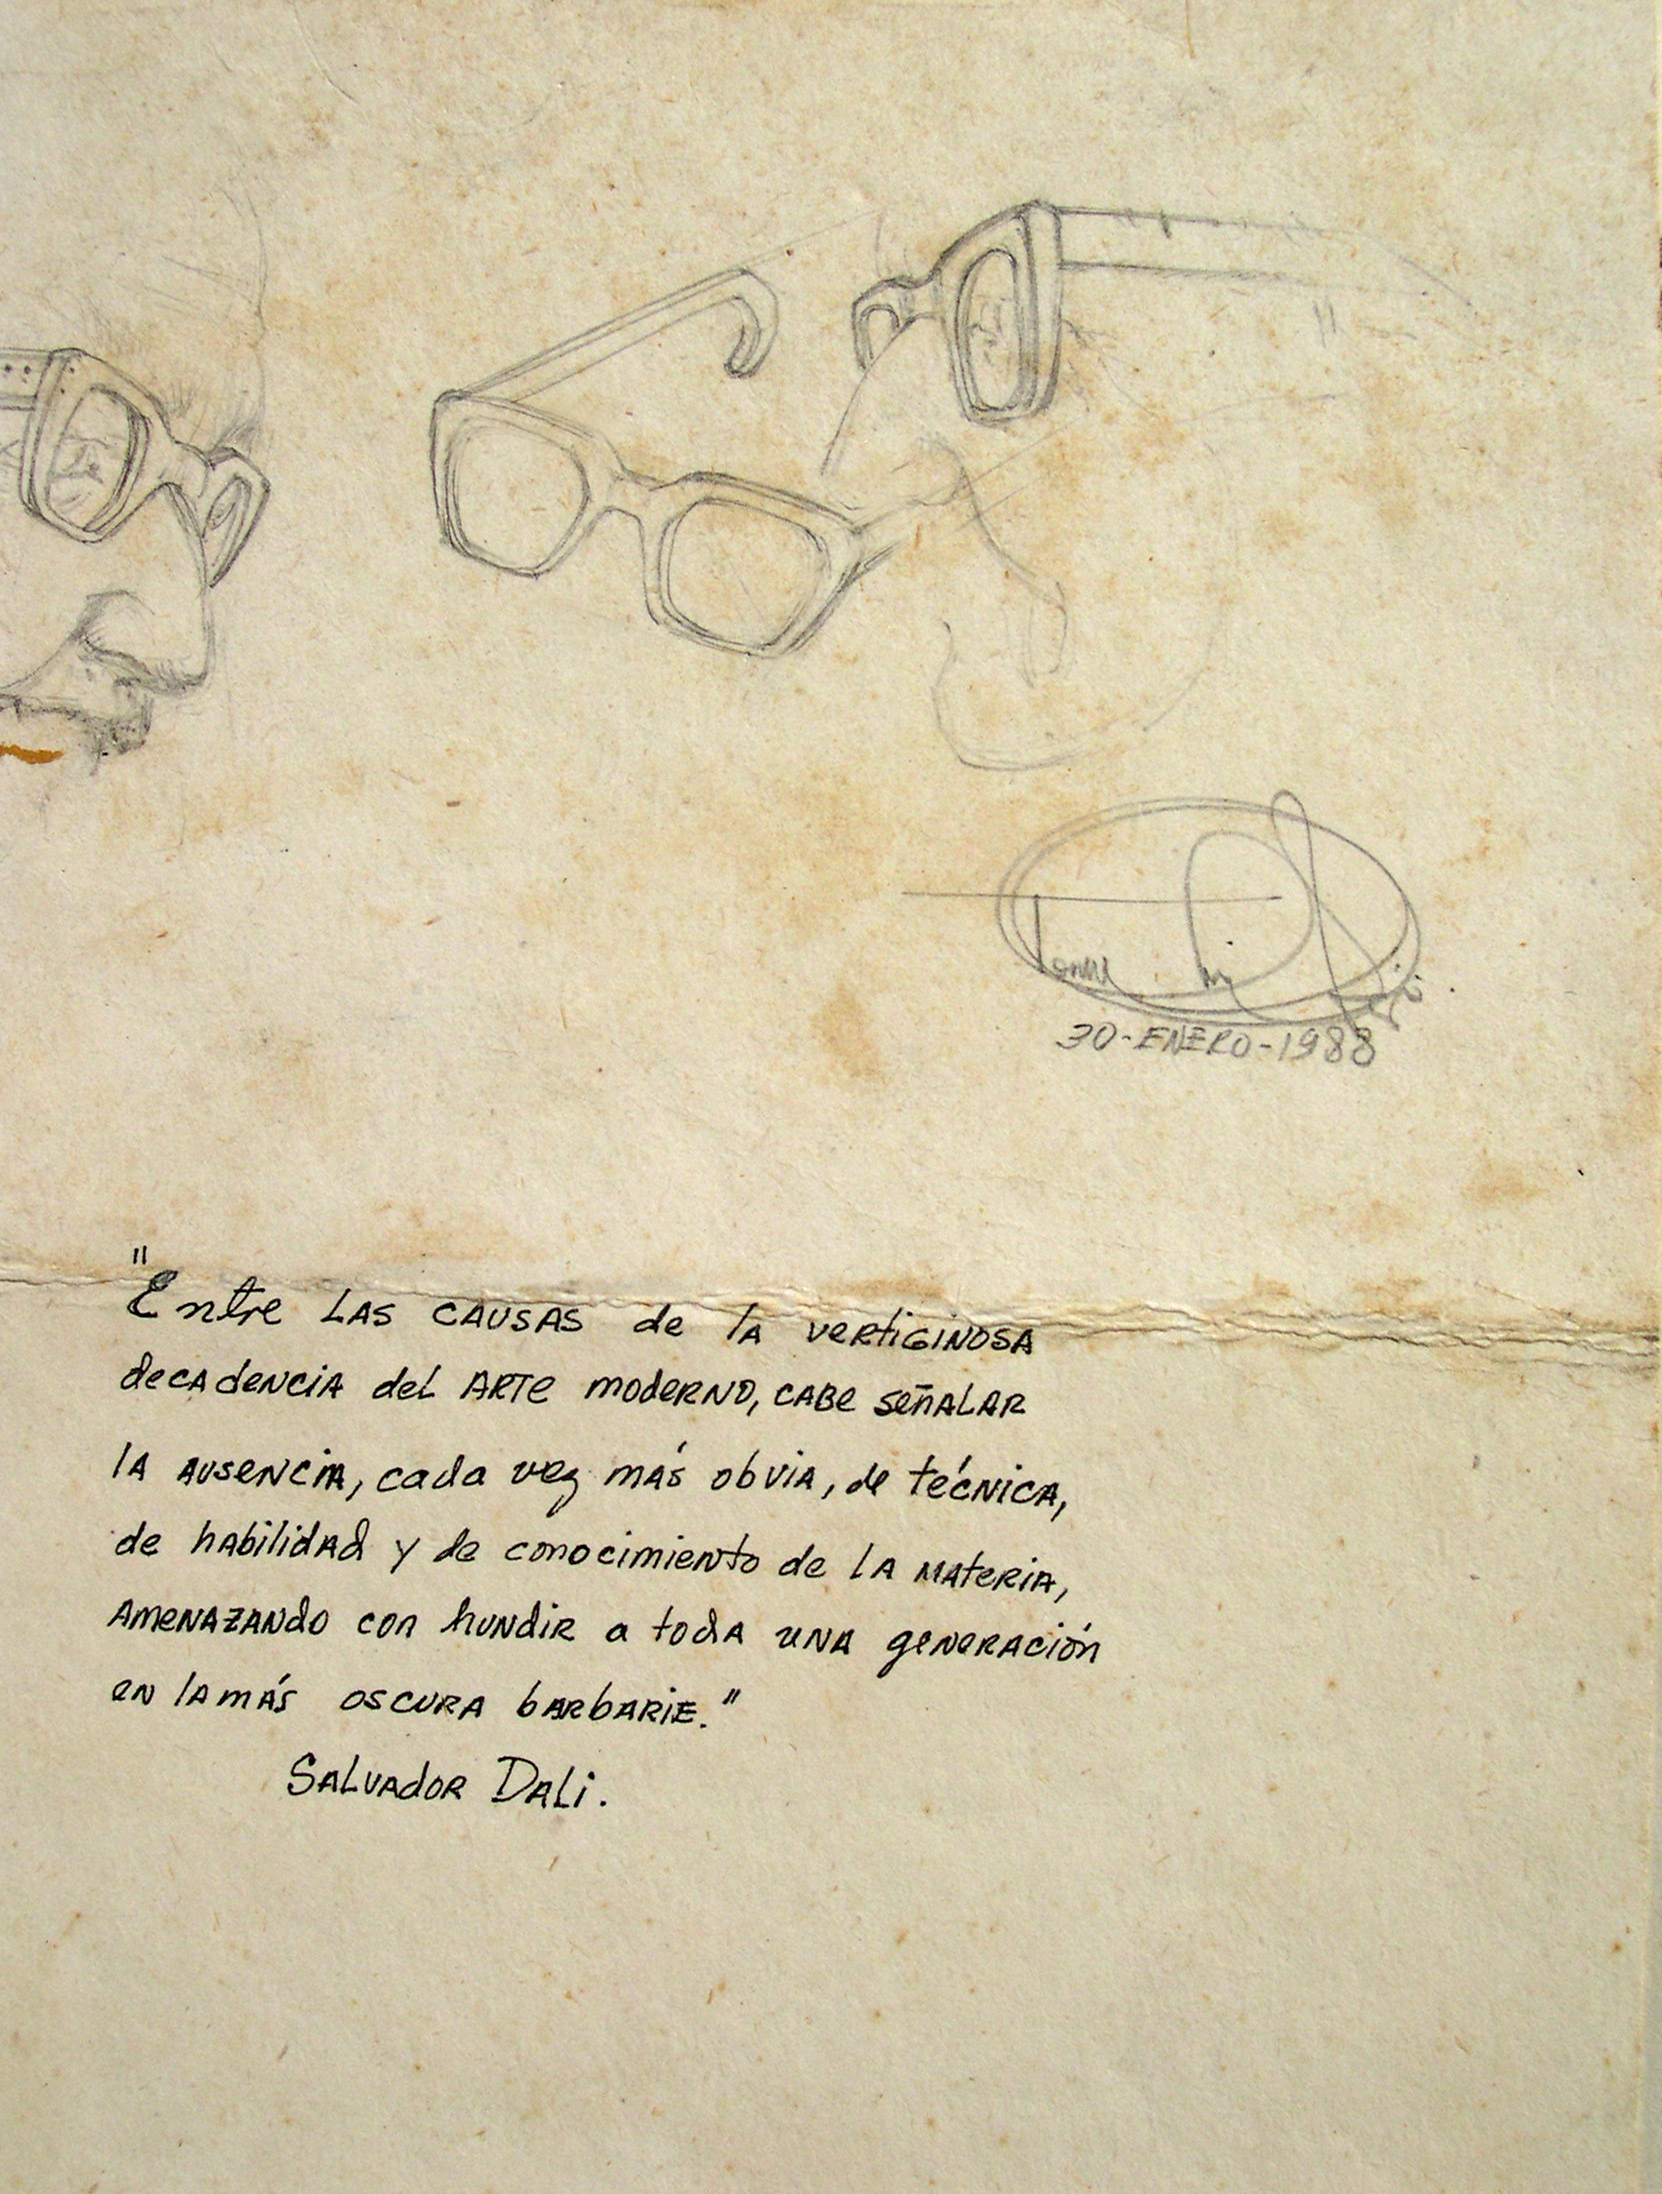 30-ENERO-1988
"Entre LAS CAUSAS de la vertiginosa
decadencia del ARTE moderno, cabe señalar
la ausencia, cada vez más obvia, de técnica,
de habilidad y de conocimiento de la materia,
amenazando con hundir a toda una generación
en la más oscura barbarie."
Salvador Dali.